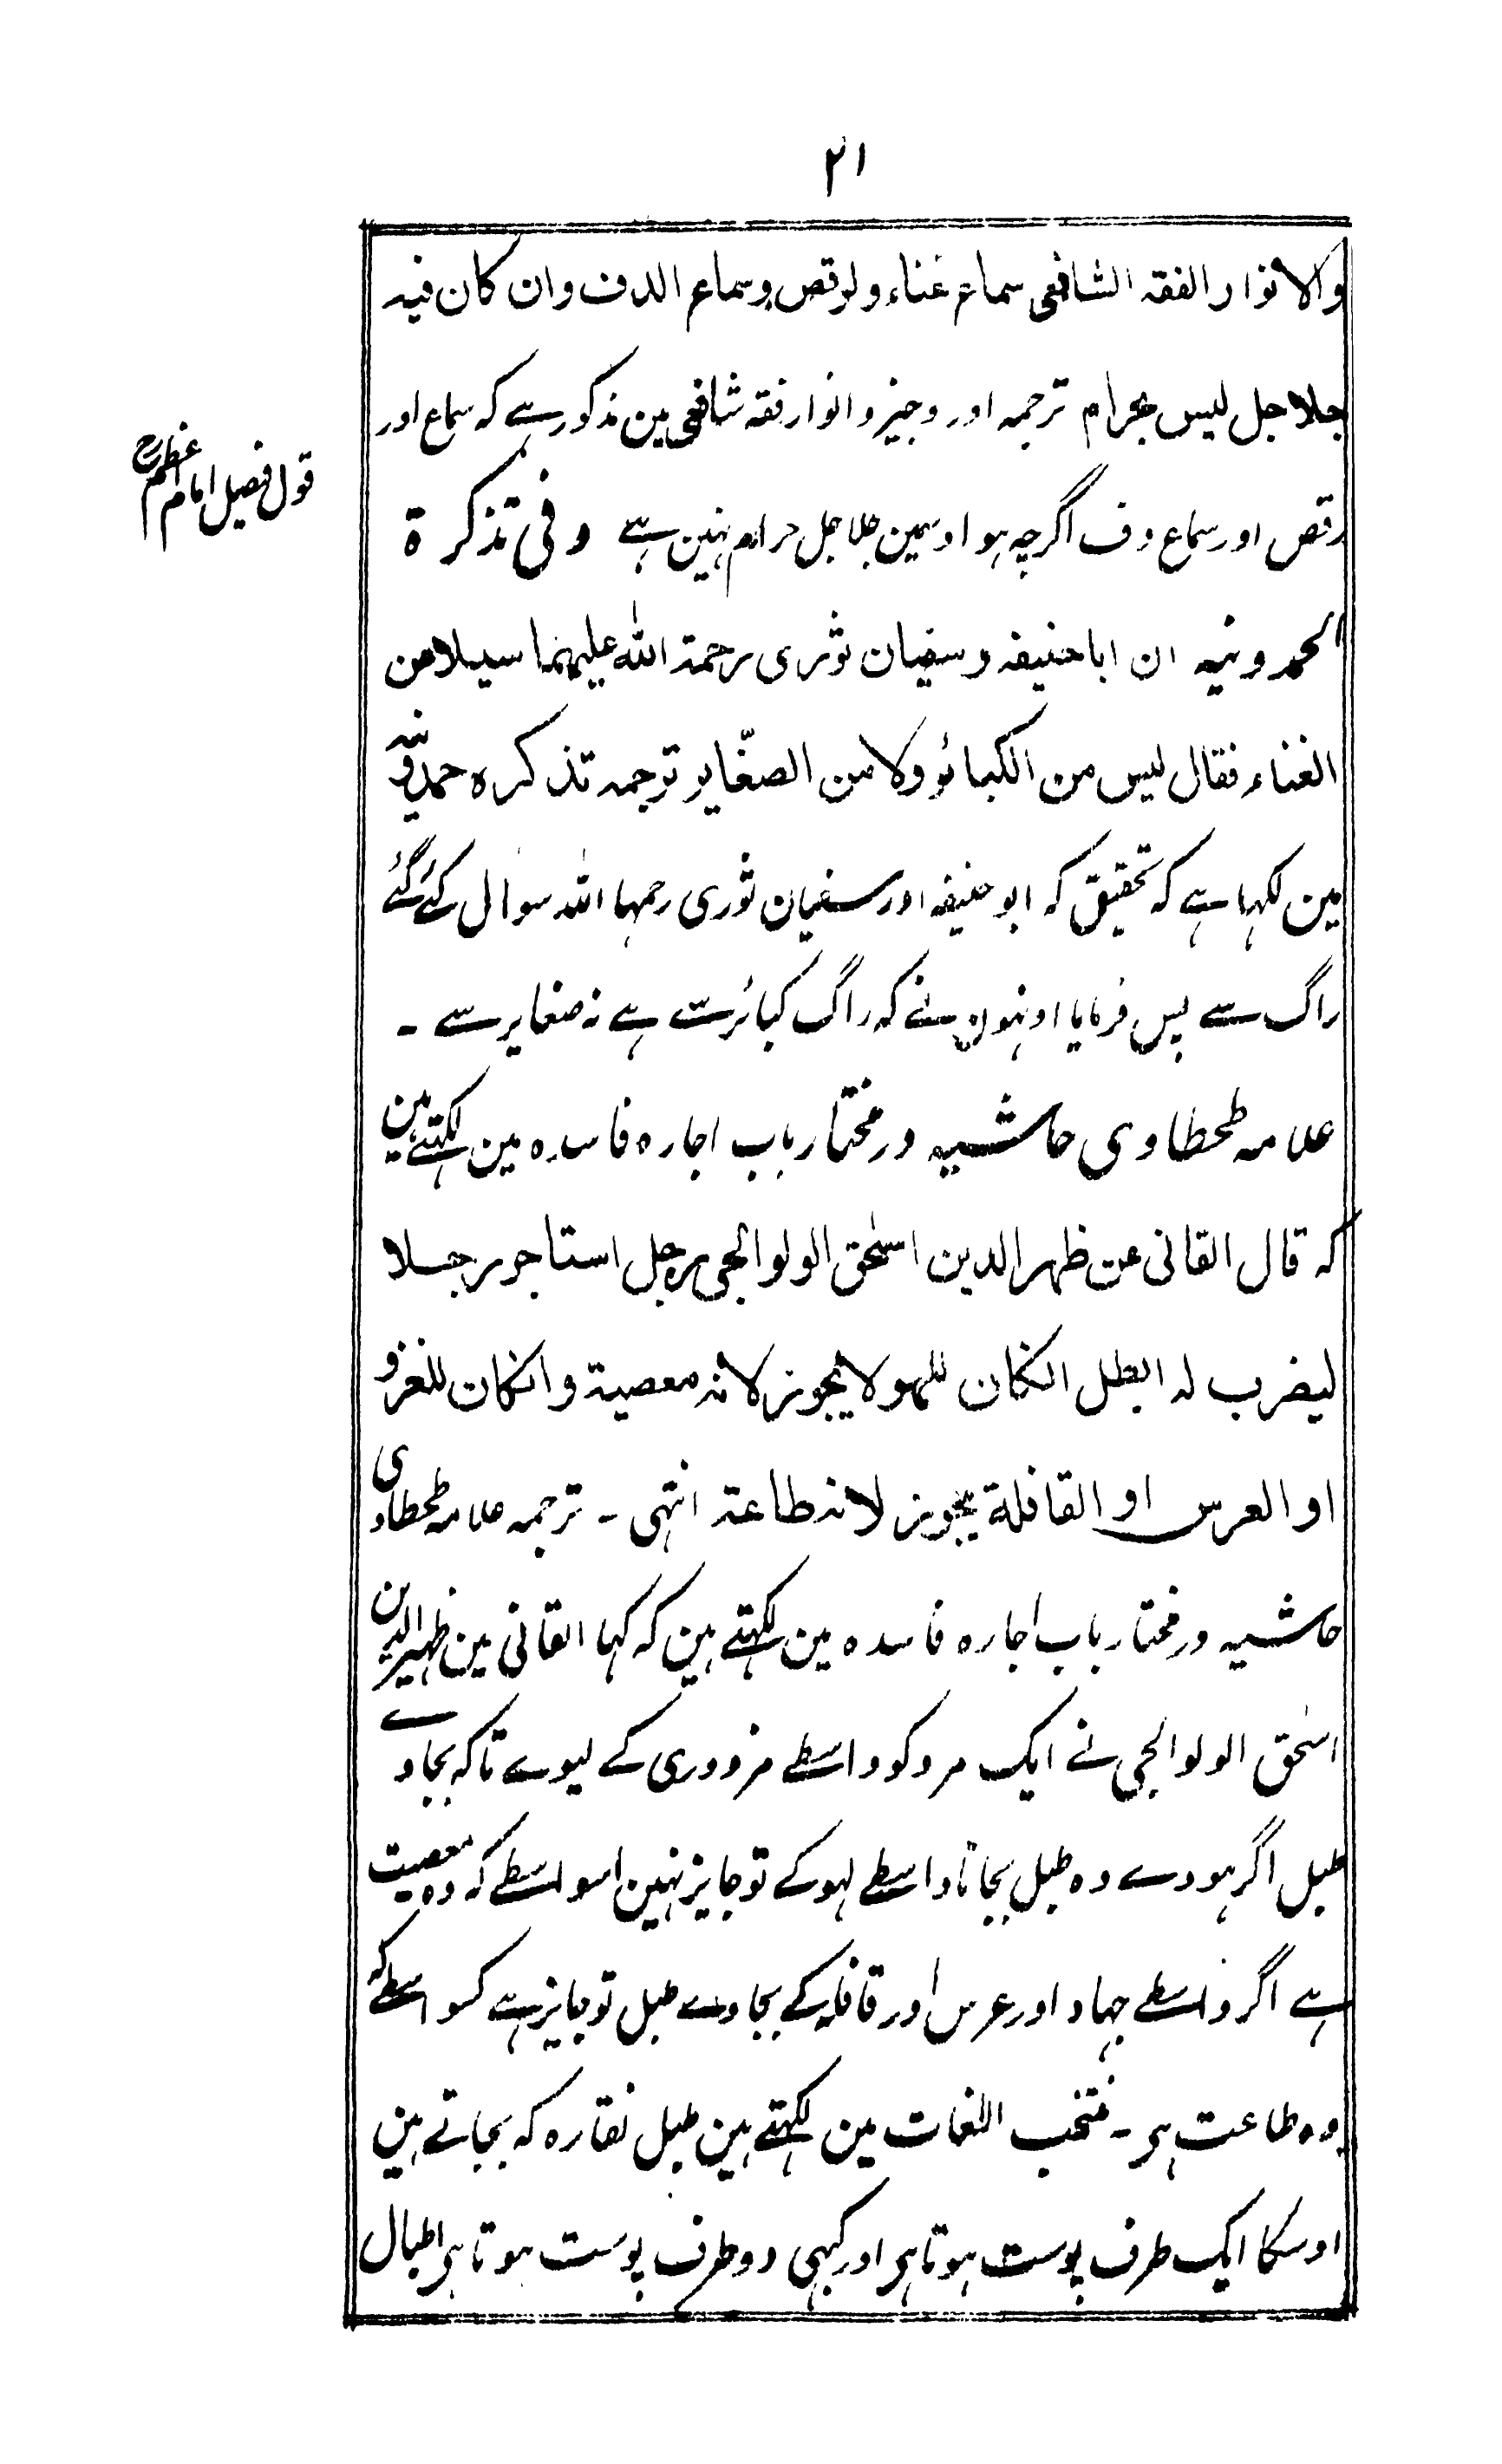 ۲۱
والانوار الفقه الشافعی سماع غناء ولرقص وسماع الدف وان کان فیه
جلاجل لیس بحرام ترجمہ اور وجیز و انوار فقہ شافعی مین مذکور ہے کہ سماع اور
قول فیصل امام اعظم رح
رقص اور سماع دف اگرچہ ہو اوسمین جلاجل حرام نہین ہے وفی تذکرة
الحمدونیہ ان اباحنیفہ وسفیان ثوری رحمة اللہ علیہما سیلا من
الغناء فقال لیس من الکبائر ولا من الصغایر ترجمہ تذکرہ حمدونیہ
مین لکہا ہے کہ تحقیق کہ ابو حنیفہ اور سفیان ثوری رحمہما اللہ سوال کئے گئے
راگ سے پس فرمایا اونہون نے کہ راگ کبائرسے ہے نہ صغایر سے ۔
علامہ طحطاوی حاشیہ درمختار باب اجارہ فاسدہ مین لکہتے ہین
کہ قال القانی عن ظہر الدین اسحٰق الولوالجی رجل استاجر رجلا
لیضرب لہ الطبل انکان للہو لا یجوز لانہ معصیة وانکان للغزو
او العرس او القافلة یجوز لانہ طاعة انتہی ۔ ترجمہ علامہ طحطاوی
حاشیہ درمختار باب اجارہ فاسدہ مین لکہتے ہین کہ کہا القانی مین ظہیر الدین
اسحٰق الولوالجی نے ایک مرد کو واسطے مزدوری کے لیوے تاکہ بجاوے
طبل اگر ہووے وہ طبل بجانا واسطے لہو کے تو جایز نہین اسواسطے کہ وہ معصیت
ہے اگر واسطے جہاد اور عرس اور قافلہ کے بجاوے طبل تو جایز ہے کسواسطے کہ
وہ طاعت ہی ۔ منتخب اللغات مین لکہتے ہین طبل نقارہ کہ بجاتے ہین
اوسکا ایک طرف پوست ہوتا ہی اور کبہی دو طرف پوست ہوتا ہی اطبال